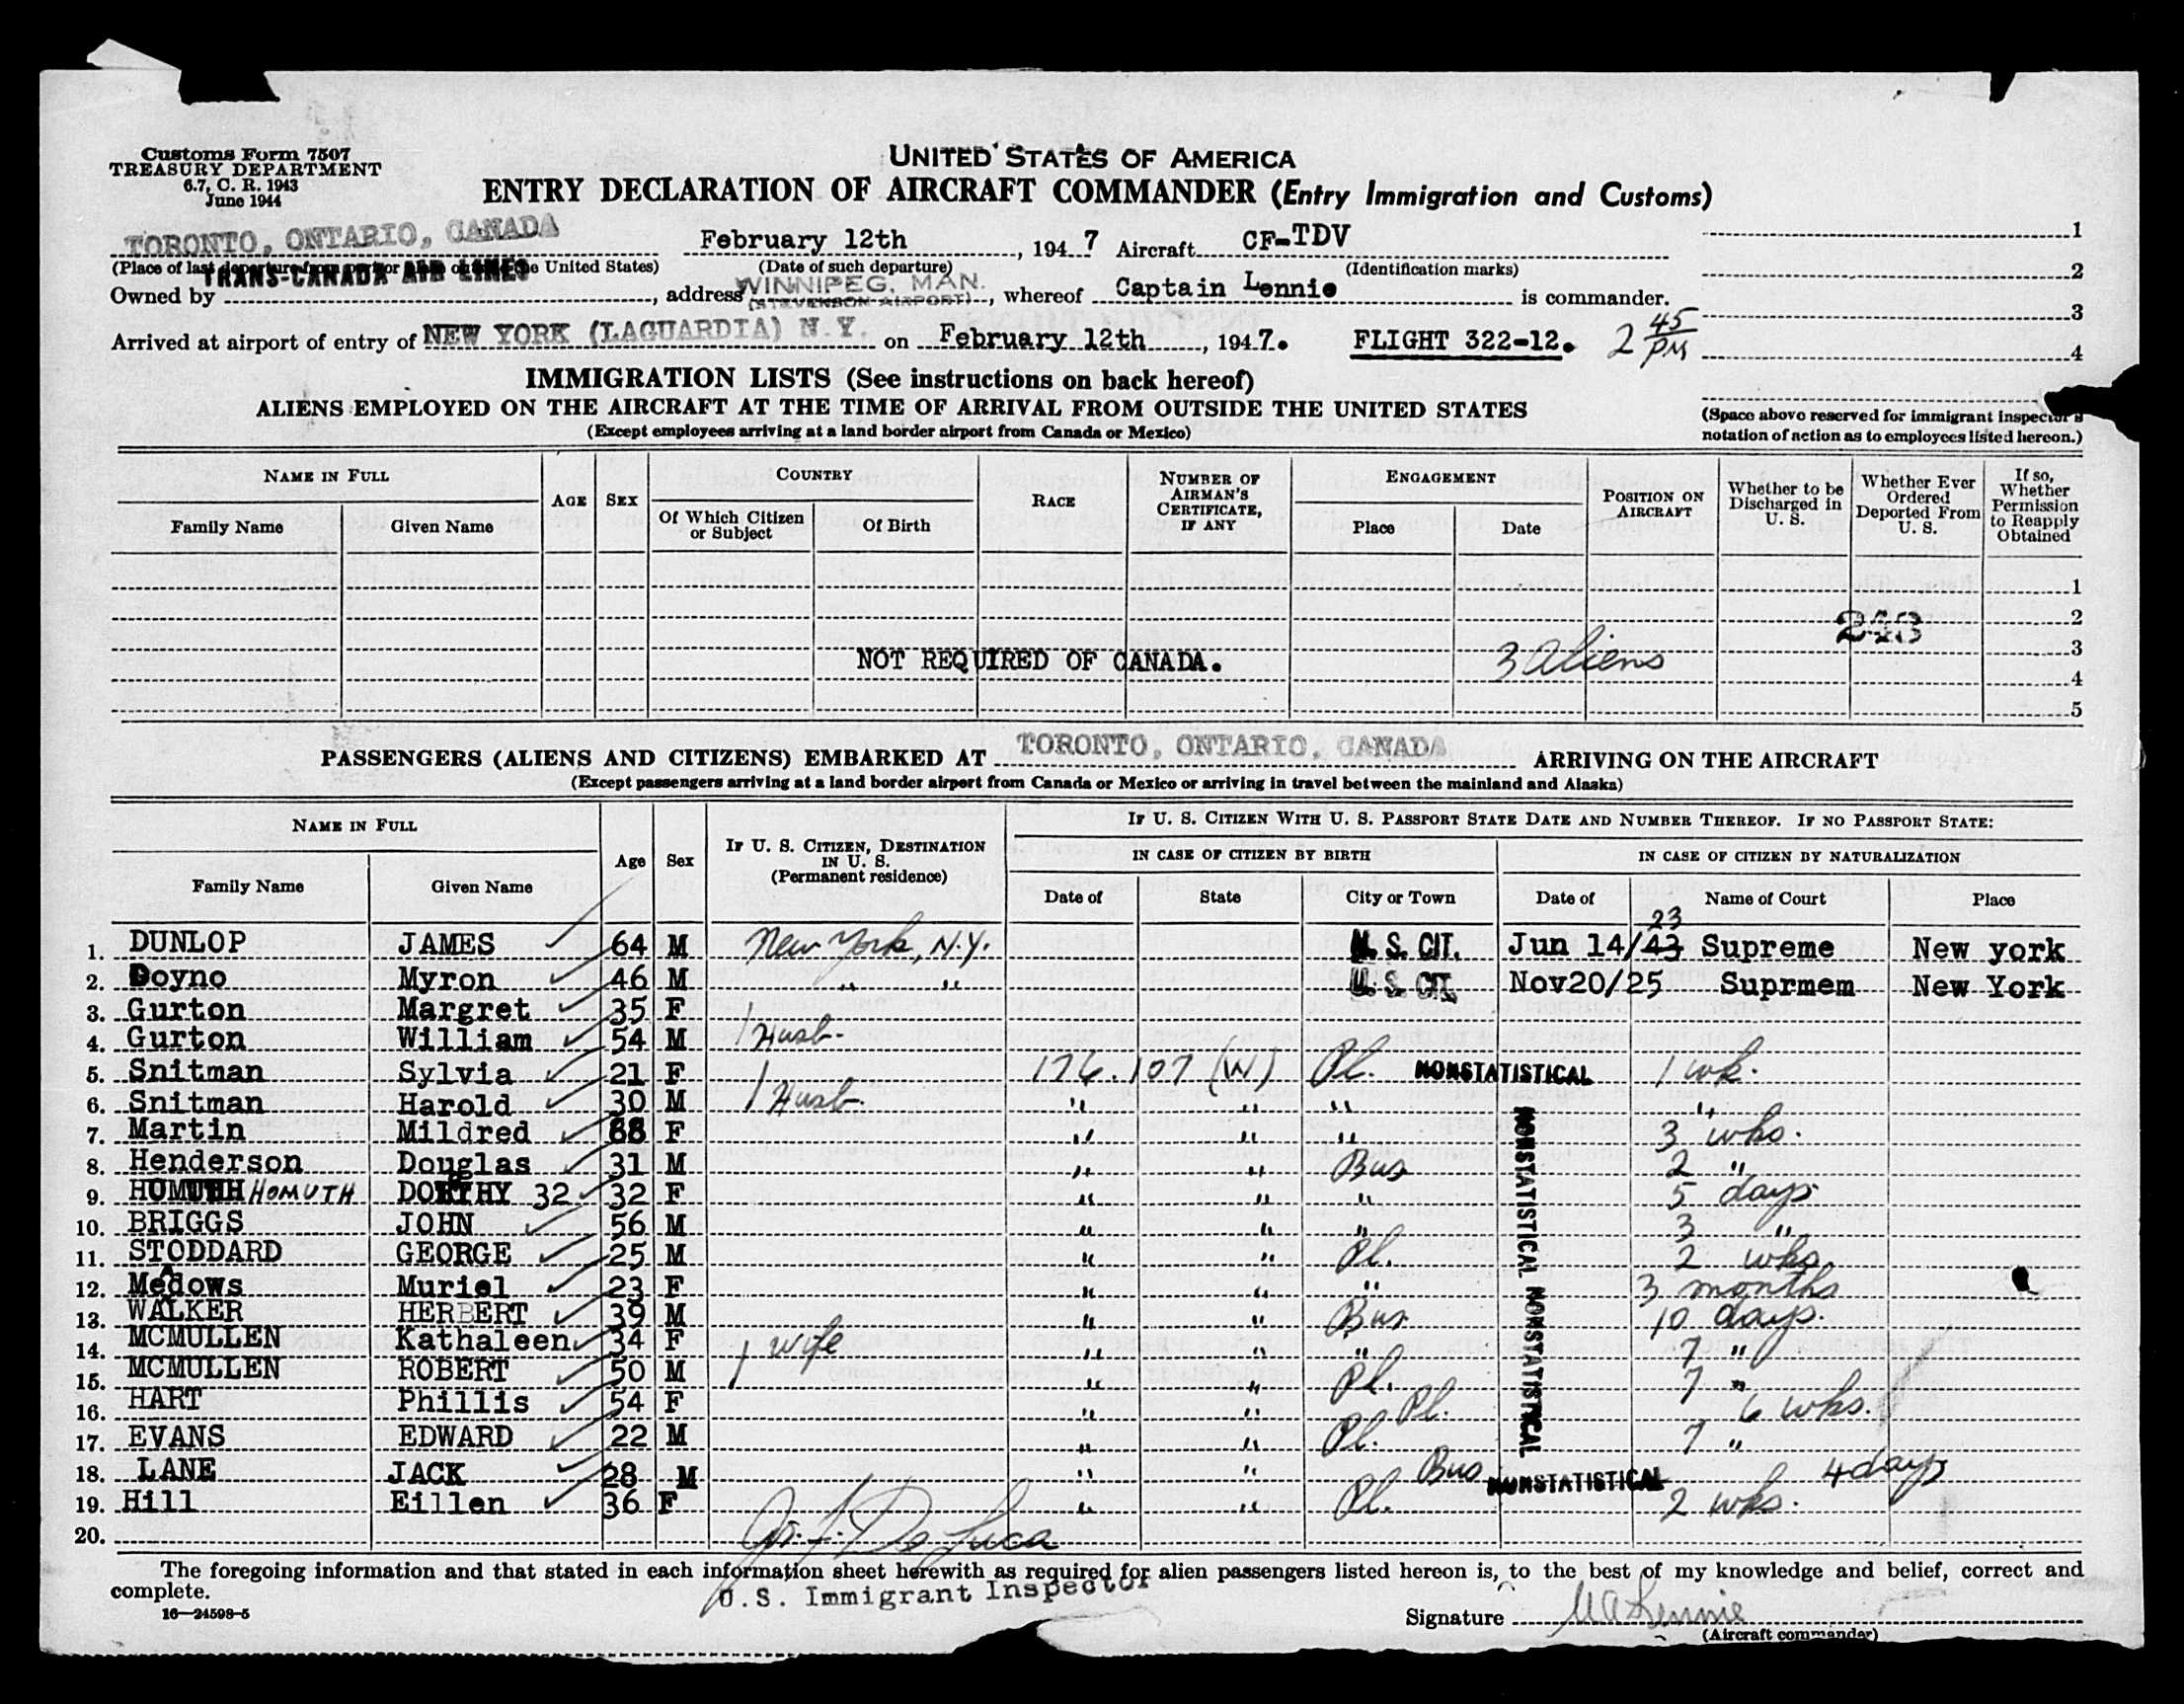 Customs Form 7507
TREASURY DEPARTMENT
6.7, C. R. 1943
June 1944
UNITED STATES OF AMERICA
ENTRY DECLARATION OF AIRCRAFT COMMANDER (Entry Immigration and Customs)
TORONTO, ONTARIO, CANADA February 12th, 1947 Aircraft CF-TDV 1
(Place of last departure from port or place outside the United States) (Date of such departure) (Identification marks) 2
TRANS-CANADA AIR LINES WINNIPEG, MAN.
Owned by , address (STEVENSON AIRPORT), whereof Captain Lennie is commander. 3
Arrived at airport of entry of NEW YORK (LAGUARDIA) N.Y. on February 12th, 1947. FLIGHT 322-12. 2 45 PM 4
IMMIGRATION LISTS (See instructions on back hereof)
ALIENS EMPLOYED ON THE AIRCRAFT AT THE TIME OF ARRIVAL FROM OUTSIDE THE UNITED STATES
(Except employees arriving at a land border airport from Canada or Mexico)
(Space above reserved for immigrant inspector's
notation of action as to employees listed hereon.)
NAME IN FULL AGE SEX COUNTRY RACE NUMBER OF AIRMAN'S CERTIFICATE, IF ANY ENGAGEMENT POSITION ON AIRCRAFT Whether to be Discharged in U. S. Whether Ever Ordered Deported From U. S. If so, Whether Permission to Reapply Obtained
Family Name Given Name Of Which Citizen or Subject Of Birth Place Date
1
2
3
NOT REQUIRED OF CANADA. 3 Aliens
4
5
PASSENGERS (ALIENS AND CITIZENS) EMBARKED AT TORONTO, ONTARIO, CANADA ARRIVING ON THE AIRCRAFT
(Except passengers arriving at a land border airport from Canada or Mexico or arriving in travel between the mainland and Alaska)
NAME IN FULL Age Sex IF U. S. CITIZEN, DESTINATION IN U. S. (Permanent residence) IF U. S. CITIZEN WITH U. S. PASSPORT STATE DATE AND NUMBER THEREOF. IF NO PASSPORT STATE:
IN CASE OF CITIZEN BY BIRTH IN CASE OF CITIZEN BY NATURALIZATION
Family Name Given Name Date of State City or Town Date of Name of Court Place
23
1. DUNLOP JAMES 64 M New York, N.Y. U.S. CIT. Jun 14/43 Supreme New york
2. Doyno Myron 46 M " " U.S. CIT. Nov20/25 Suprmem New York
3. Gurton Margret 35 F
4. Gurton William 54 M Husb.
5. Snitman Sylvia 21 F 176.107 (W) Pl. NONSTATISTICAL 1 wk.
6. Snitman Harold 30 M Husb. " " " "
7. Martin Mildred F " " " 3 wks.
8. Henderson Douglas 31 M " " Bus 2 "
9. HOMUTH DORTHY 32 32 F " " " 5 days
10. BRIGGS JOHN 56 M " " " 3 "
11. STODDARD GEORGE 25 M " " Pl. 2 wks
12. Meadows Muriel 23 F " " " 3 months
13. WALKER HERBERT 39 M " " Bus 10 days.
14. MCMULLEN Kathaleen 34 F wife " " " 7 "
15. MCMULLEN ROBERT 50 M " " Pl. 7 "
16. HART Phillis 54 F " " Pl. 6 wks.
17. EVANS EDWARD 22 M " " Pl. 7 "
18. LANE JACK 28 M " " Bus NONSTATISTICAL 4 days
19. Hill Eillen 36 F " " Pl. 2 wks.
20. Jos. F. De Luca
NONSTATISTICAL NONSTATISTICAL
The foregoing information and that stated in each information sheet herewith as required for alien passengers listed hereon is, to the best of my knowledge and belief, correct and
complete.
U.S. Immigrant Inspector
16—24598-5
Signature Lennie
(Aircraft commander)